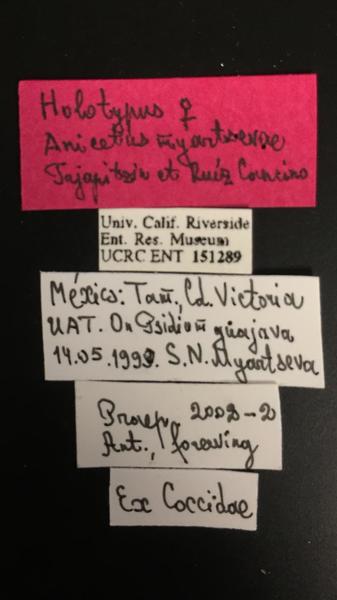 Holotypus ♀
Anicetus myartsevae
Tajapitzin et Ruíz Cancino
Univ. Calif. Riverside
Ent. Res. Museum
UCRC ENT 151289
México: Tam., Cd. Victoria
UAT. On Psidium guajava
14.05.1999. S.N. Myartseva
2008-2
Ant., forewing
Ex Coccidae